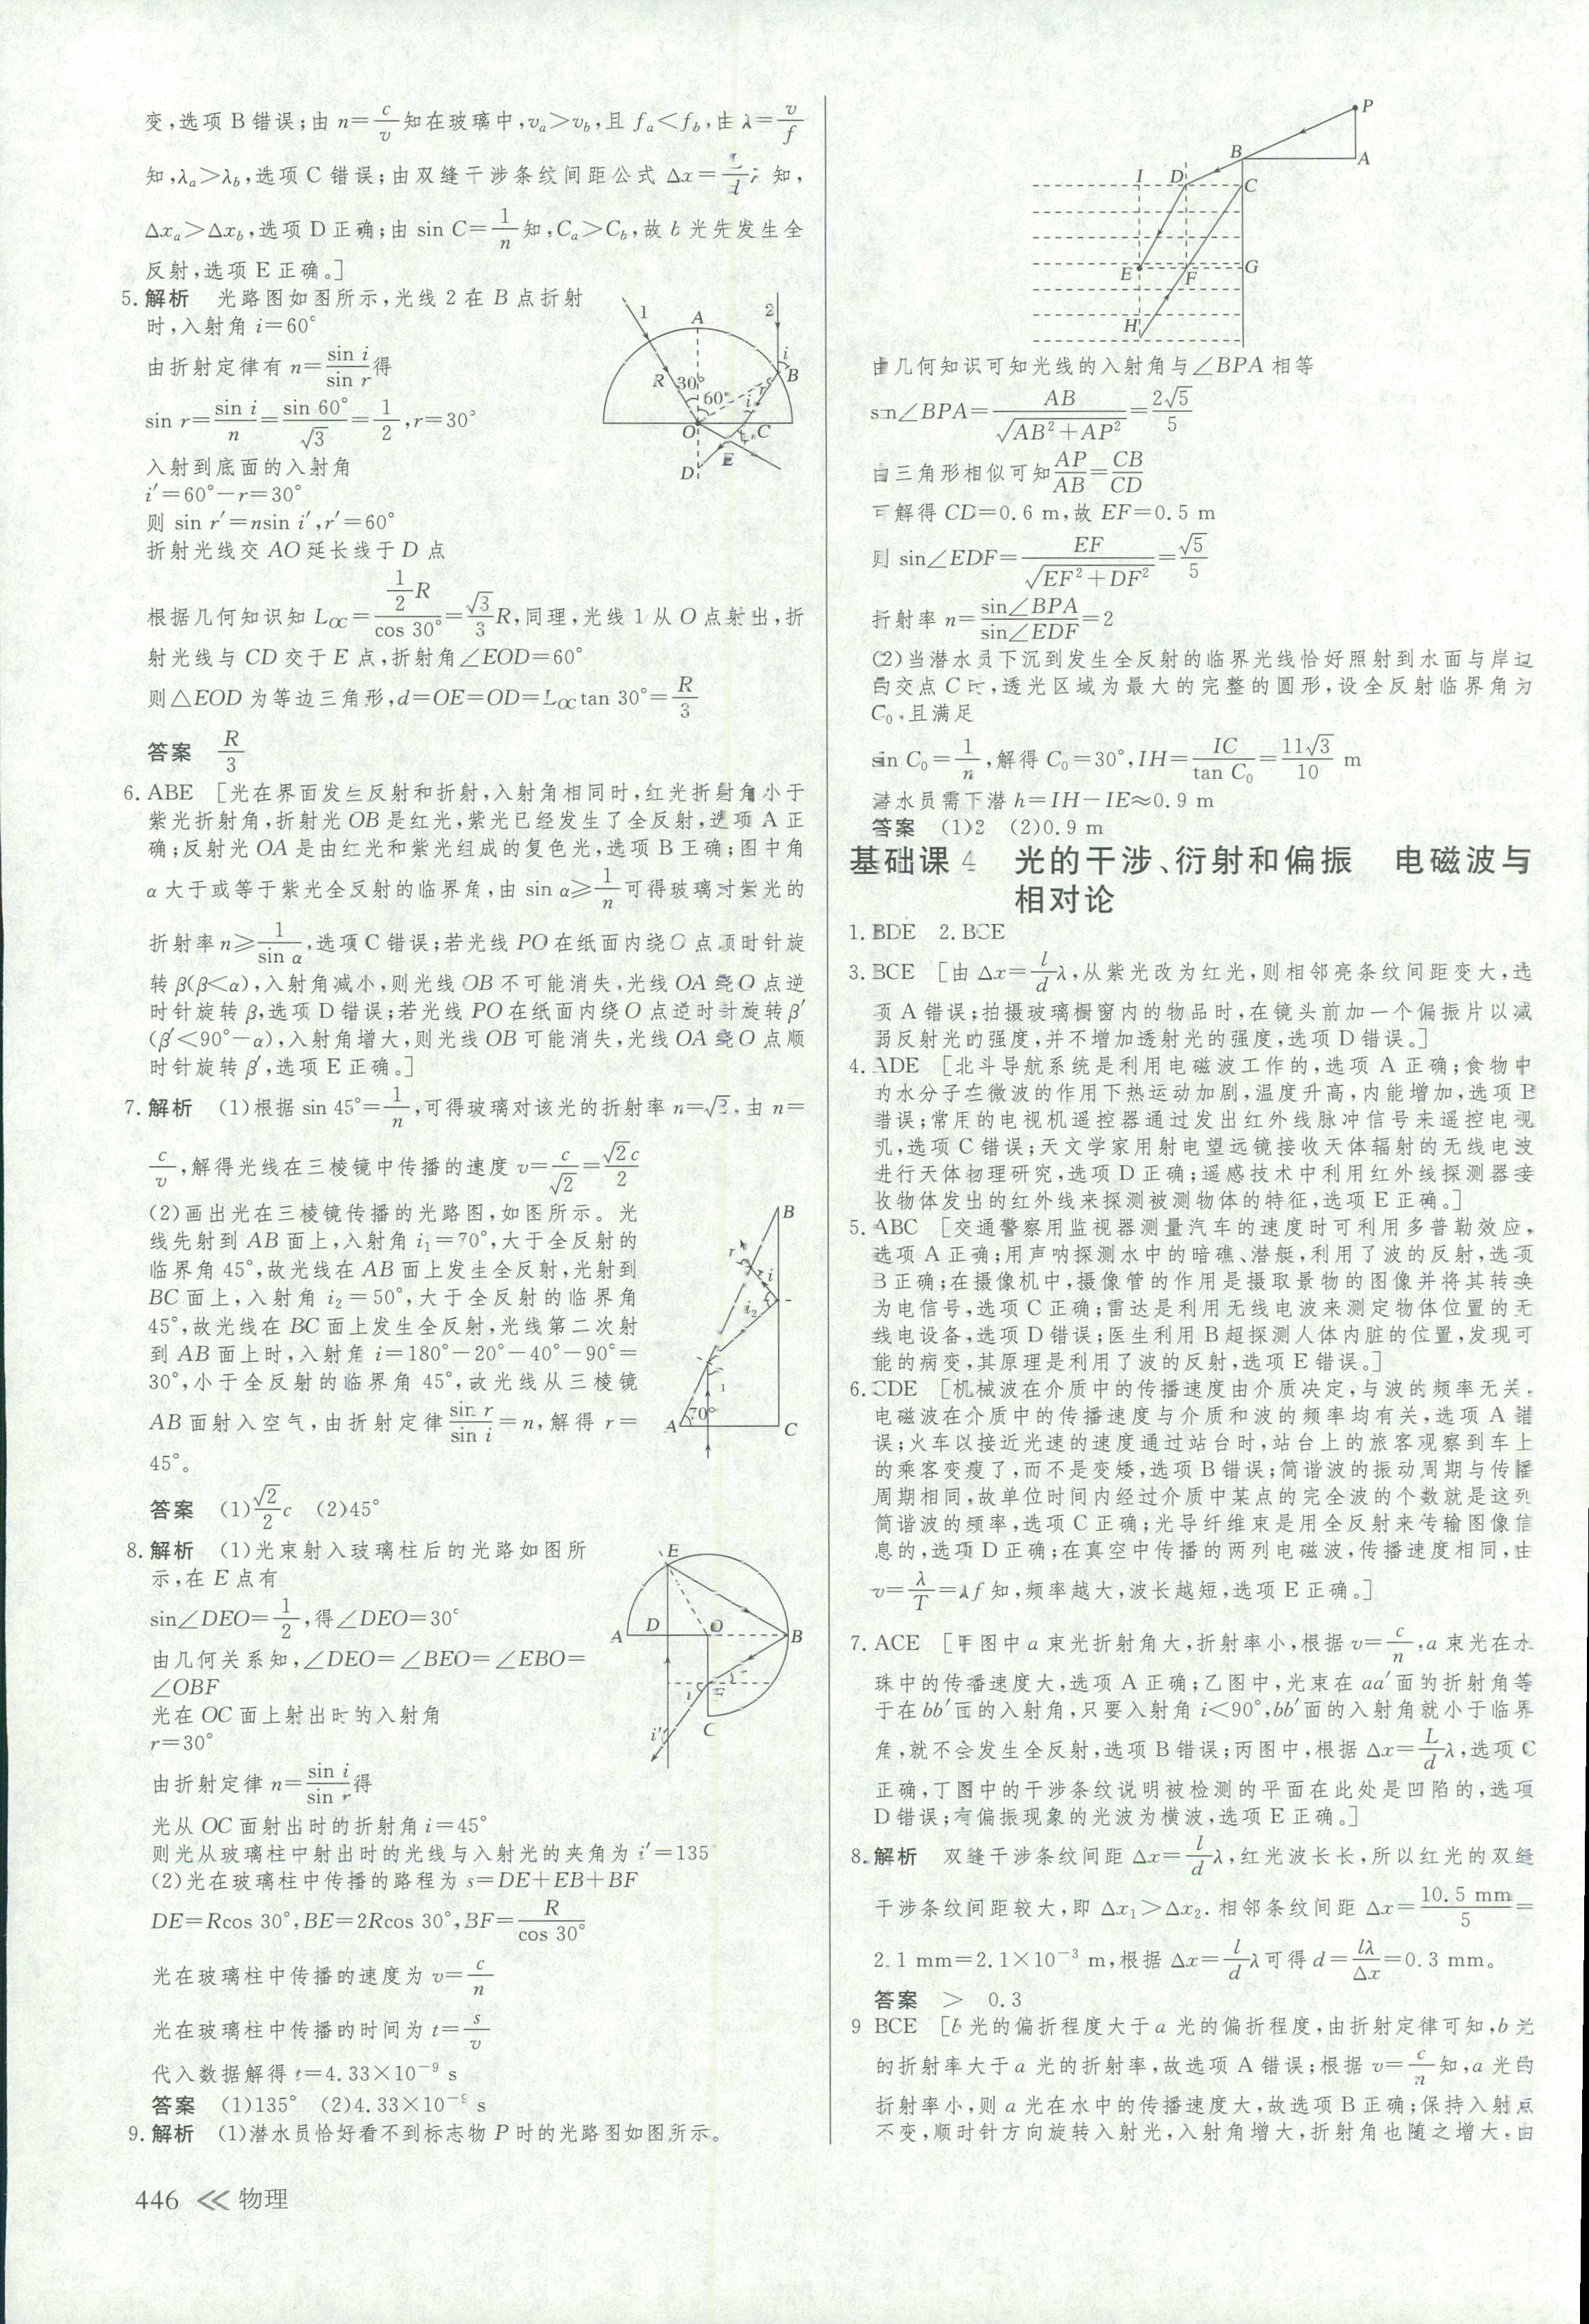 变,选项B错误;由 n=c/v 知在玻璃中,vₐ>v_b,且 fₐ<f_b,由 λ=v/f
知,λₐ>λ_b,选项C错误;由双缝干涉条纹间距公式 Δx= 知,
Δxₐ>Δx_b,选项D正确;由 sin C=1/n 知,Cₐ>C_b,故b光先发生全
反射,选项E正确。]
5.解析 光路图如图所示,光线2在B点折射
时,入射角 i=60°
由折射定律有 n=sin i/sin r 得
sin r=sin i/n=sin 60°/√3=1/2,r=30°
入射到底面的入射角
i′=60°-r=30°
则 sin r′=nsin i′,r′=60°
折射光线交AO延长线于D点
根据几何知识知 L_OC=(1/2 R)/cos 30°=√3/3 R,同理,光线1从O点射出,折
射光线与CD交于E点,折射角∠EOD=60°
则△EOD为等边三角形,d=OE=OD=L_OC tan 30°=R/3
答案 R/3
1 A 2 i B R 30° 60° r i O C E D
6.ABE [光在界面发生反射和折射,入射角相同时,红光折射角小于
紫光折射角,折射光OB是红光,紫光已经发生了全反射,选项A正
确;反射光OA是由红光和紫光组成的复色光,选项B正确;图中角
α大于或等于紫光全反射的临界角,由 sin α≥1/n 可得玻璃对紫光的
折射率 n≥1/sin α,选项C错误;若光线PO在纸面内绕O点顺时针旋
转β(β<α),入射角减小,则光线OB不可能消失,光线OA绕O点逆
时针旋转β,选项D错误;若光线PO在纸面内绕O点逆时针旋转β′
(β′<90°-α),入射角增大,则光线OB可能消失,光线OA绕O点顺
时针旋转β′,选项E正确。]
7.解析 (1)根据 sin 45°=1/n,可得玻璃对该光的折射率 n=√2,由 n=
c/v,解得光线在三棱镜中传播的速度 v=c/√2=√2c/2
(2)画出光在三棱镜传播的光路图,如图所示。光
线先射到AB面上,入射角 i₁=70°,大于全反射的
临界角45°,故光线在AB面上发生全反射,光射到
BC面上,入射角 i₂=50°,大于全反射的临界角
45°,故光线在BC面上发生全反射,光线第二次射
到AB面上时,入射角 i=180°-20°-40°-90°=
30°,小于全反射的临界角45°,故光线从三棱镜
AB面射入空气,由折射定律 sin r/sin i=n,解得 r=
45°。
B r i i₂ A 70° C
答案 (1)√2/2 c (2)45°
8.解析 (1)光束射入玻璃柱后的光路如图所
示,在E点有
sin∠DEO=1/2,得∠DEO=30°
由几何关系知,∠DEO=∠BEO=∠EBO=
∠OBF
光在OC面上射出时的入射角
r=30°
由折射定律 n=sin i/sin r 得
光从OC面射出时的折射角 i=45°
则光从玻璃柱中射出时的光线与入射光的夹角为 i′=135
(2)光在玻璃柱中传播的路程为 s=DE+EB+BF
DE=Rcos 30°,BE=2Rcos 30°,BF=R/cos 30°
光在玻璃柱中传播的速度为 v=c/n
光在玻璃柱中传播的时间为 t=s/v
代入数据解得 t=4.33×10⁻⁹ s
答案 (1)135° (2)4.33×10⁻⁹ s
E A D O B F r i C i′
9.解析 (1)潜水员恰好看不到标志物P时的光路图如图所示。
P B A I D C E F G H
由几何知识可知光线的入射角与∠BPA相等
sin∠BPA=AB/√(AB²+AP²)=2√5/5
由三角形相似可知 AP/AB=CB/CD
可解得 CD=0.6 m,故 EF=0.5 m
则 sin∠EDF=EF/√(EF²+DF²)=√5/5
折射率 n=sin∠BPA/sin∠EDF=2
(2)当潜水员下沉到发生全反射的临界光线恰好照射到水面与岸边
的交点C时,透光区域为最大的完整的圆形,设全反射临界角为
C₀,且满足
sin C₀=1/n,解得 C₀=30°,IH=IC/tan C₀=11√3/10 m
潜水员需下潜 h=IH-IE≈0.9 m
答案 (1)2 (2)0.9 m
基础课4 光的干涉、衍射和偏振 电磁波与
相对论
1.BDE 2.BCE
3.BCE [由 Δx=l/d λ,从紫光改为红光,则相邻亮条纹间距变大,选
项A错误;拍摄玻璃橱窗内的物品时,在镜头前加一个偏振片以减
弱反射光的强度,并不增加透射光的强度,选项D错误。]
4.ADE [北斗导航系统是利用电磁波工作的,选项A正确;食物中
的水分子在微波的作用下热运动加剧,温度升高,内能增加,选项B
错误;常用的电视机遥控器通过发出红外线脉冲信号来遥控电视
机,选项C错误;天文学家用射电望远镜接收天体辐射的无线电波
进行天体物理研究,选项D正确;遥感技术中利用红外线探测器接
收物体发出的红外线来探测被测物体的特征,选项E正确。]
5.ABC [交通警察用监视器测量汽车的速度时可利用多普勒效应,
选项A正确;用声呐探测水中的暗礁、潜艇,利用了波的反射,选项
B正确;在摄像机中,摄像管的作用是摄取景物的图像并将其转换
为电信号,选项C正确;雷达是利用无线电波来测定物体位置的无
线电设备,选项D错误;医生利用B超探测人体内脏的位置,发现可
能的病变,其原理是利用了波的反射,选项E错误。]
6.CDE [机械波在介质中的传播速度由介质决定,与波的频率无关,
电磁波在介质中的传播速度与介质和波的频率均有关,选项A错
误;火车以接近光速的速度通过站台时,站台上的旅客观察到车上
的乘客变瘦了,而不是变矮,选项B错误;简谐波的振动周期与传播
周期相同,故单位时间内经过介质中某点的完全波的个数就是这列
简谐波的频率,选项C正确;光导纤维束是用全反射来传输图像信
息的,选项D正确;在真空中传播的两列电磁波,传播速度相同,由
v=λ/T=λf 知,频率越大,波长越短,选项E正确。]
7.ACE [甲图中a束光折射角大,折射率小,根据 v=c/n,a束光在水
珠中的传播速度大,选项A正确;乙图中,光束在aa′面的折射角等
于在bb′面的入射角,只要入射角 i<90°,bb′面的入射角就小于临界
角,就不会发生全反射,选项B错误;丙图中,根据 Δx=L/d λ,选项C
正确,丁图中的干涉条纹说明被检测的平面在此处是凹陷的,选项
D错误;有偏振现象的光波为横波,选项E正确。]
8.解析 双缝干涉条纹间距 Δx=l/d λ,红光波长长,所以红光的双缝
干涉条纹间距较大,即 Δx₁>Δx₂.相邻条纹间距 Δx=10.5 mm/5=
2.1 mm=2.1×10⁻³ m,根据 Δx=l/d λ 可得 d=lλ/Δx=0.3 mm。
答案 > 0.3
9 BCE [b光的偏折程度大于a光的偏折程度,由折射定律可知,b光
的折射率大于a光的折射率,故选项A错误;根据 v=c/n 知,a光的
折射率小,则a光在水中的传播速度大,故选项B正确;保持入射点
不变,顺时针方向旋转入射光,入射角增大,折射角也随之增大,由
446 物理